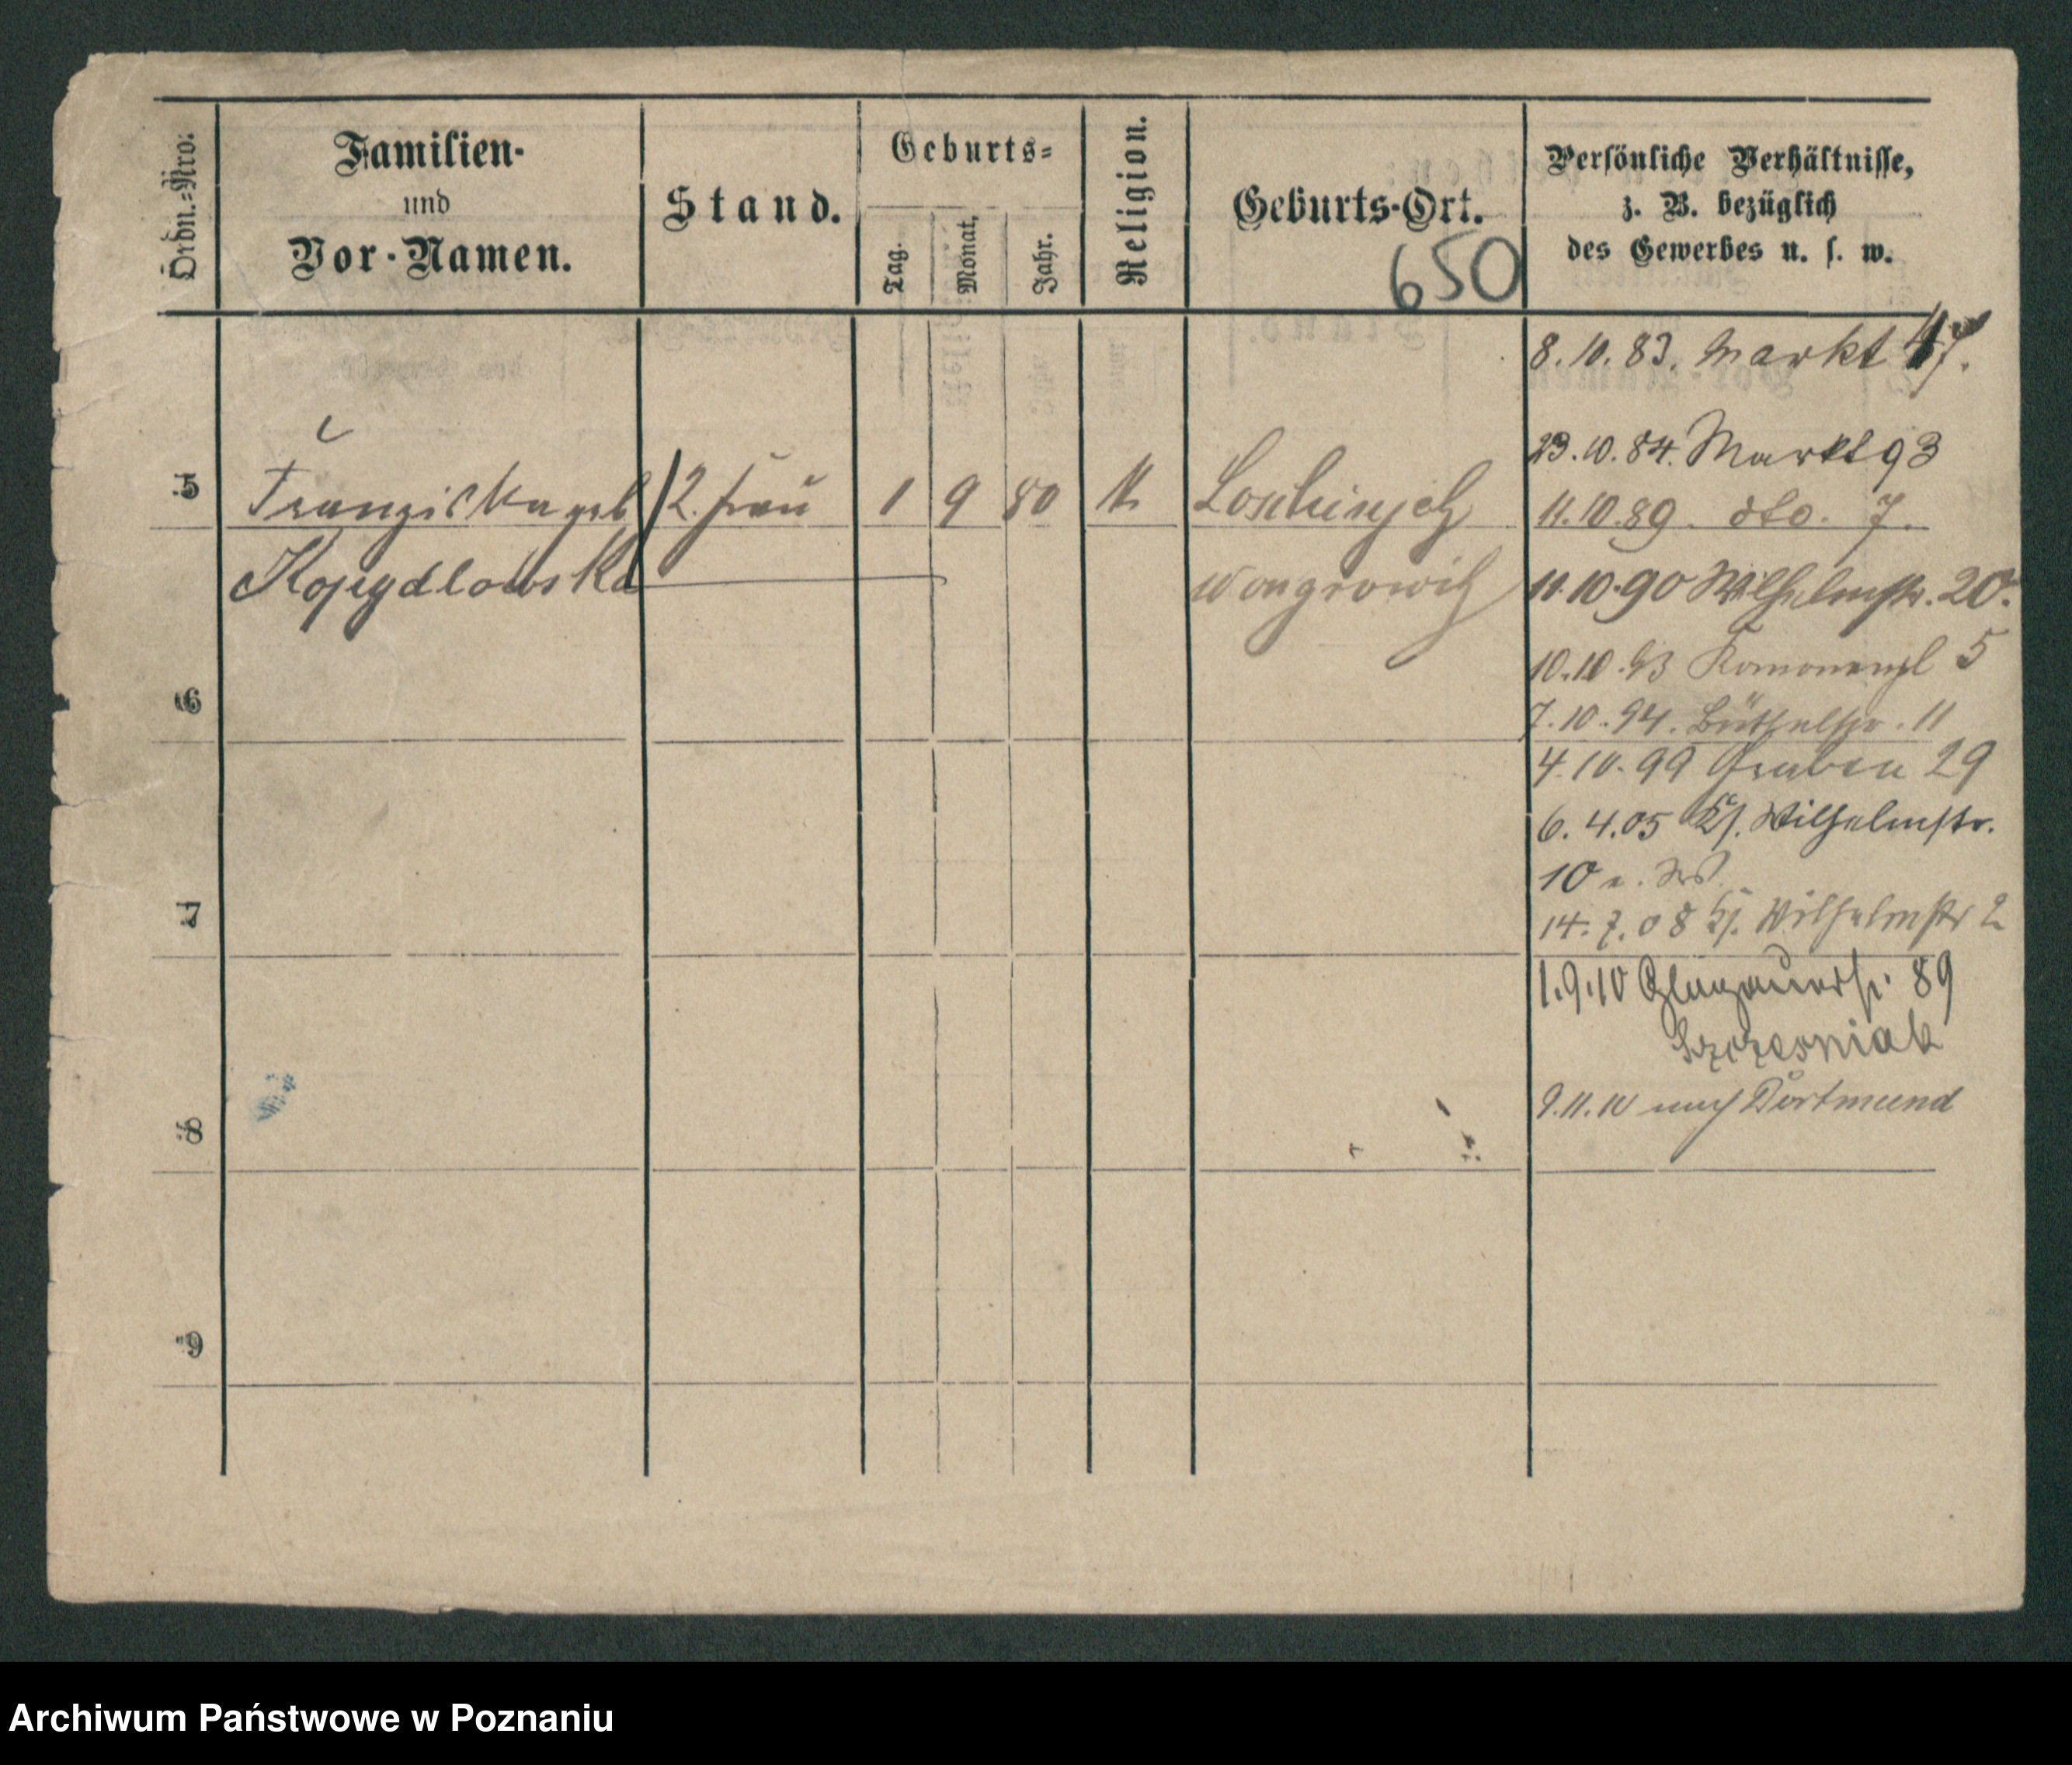 Ordn.-Nro:
Familien-
und
Vor-Namen.
Stand.
Geburts-
Tag.
Monat.
Jahr.
Religion.
Geburts-Ort.
650
Persönliche Verhältnisse,
z. B. bezüglich
des Gewerbes u. s. w.
8.10.83. Markt 47.
23.10.84. Markt 93
5 Franziska geb 2. Frau 1 9 80 K.
11.10.89. dto. 7.
Kopydlowska
Wongrowitz
11.10.90 Wilhelmstr. 20.
10.10.93 5
6
7.10.94. Büttelstr. 11
4.10.99 Graben 29
6.4.05 Kl. Wilhelmstr.
10
7
14.7.08 Kl. Wilhelmstr 2
1.9.10 Glogauerstr. 89
Szczesniak
8
9.11.10 nach Dortmund
9
Archiwum Państwowe w Poznaniu